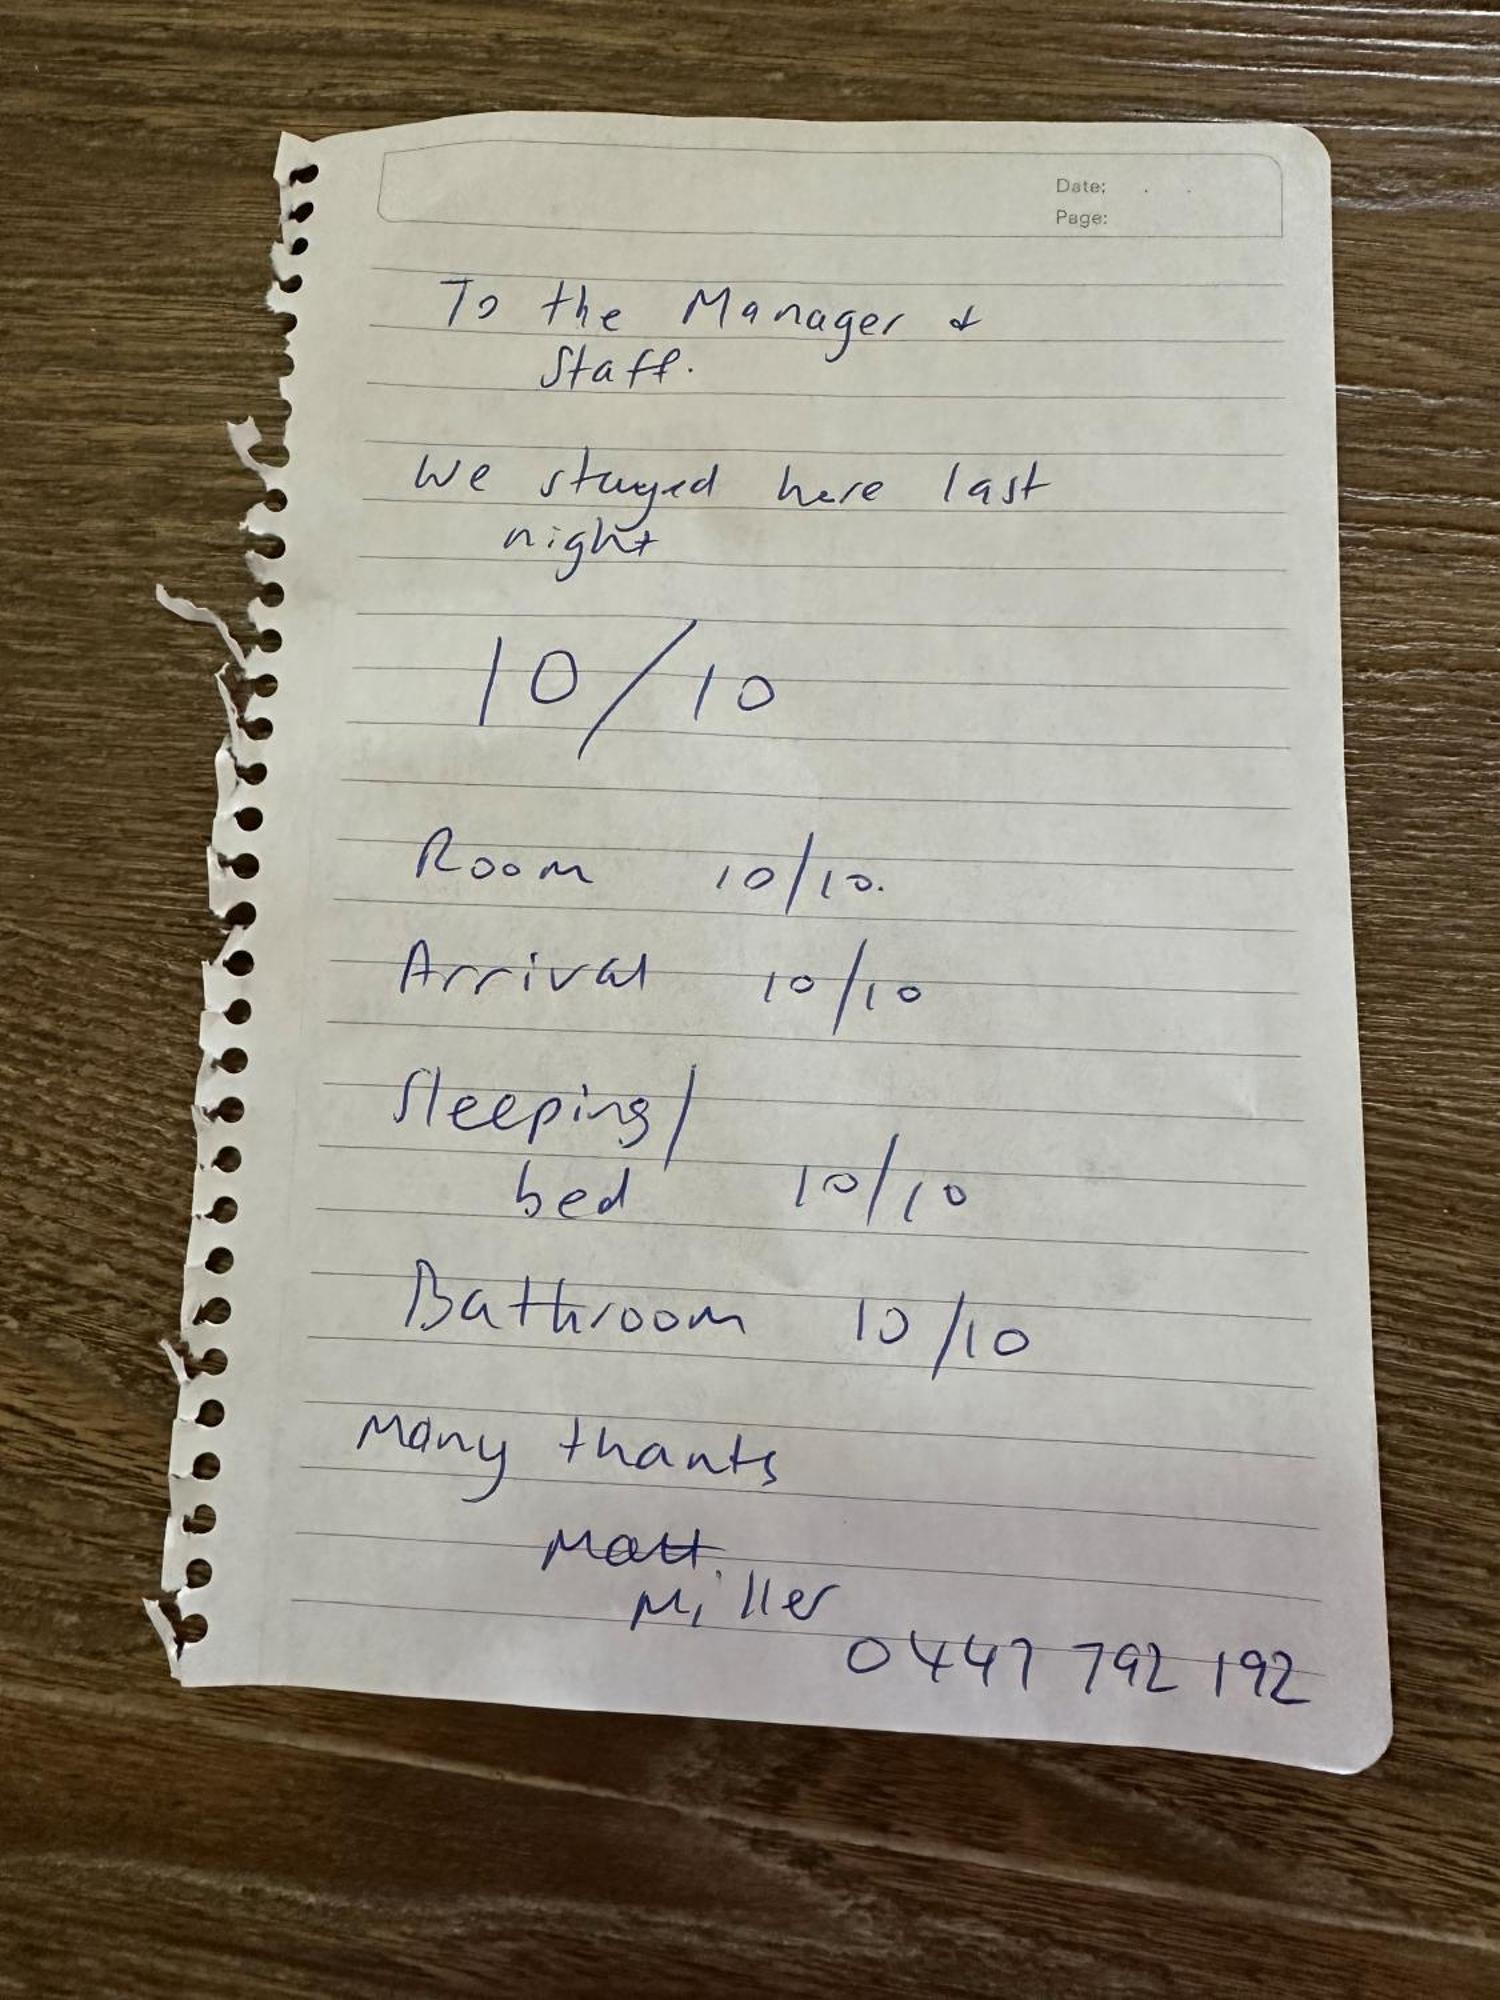 Date:
Page:
To the Manager &
Staff.
We stayed here last
night
10/10
Room 10/10.
Arrival 10/10
Sleeping/
bed 10/10
Bathroom 10/10
Many thanks
Matt
Miller
0447 792 192